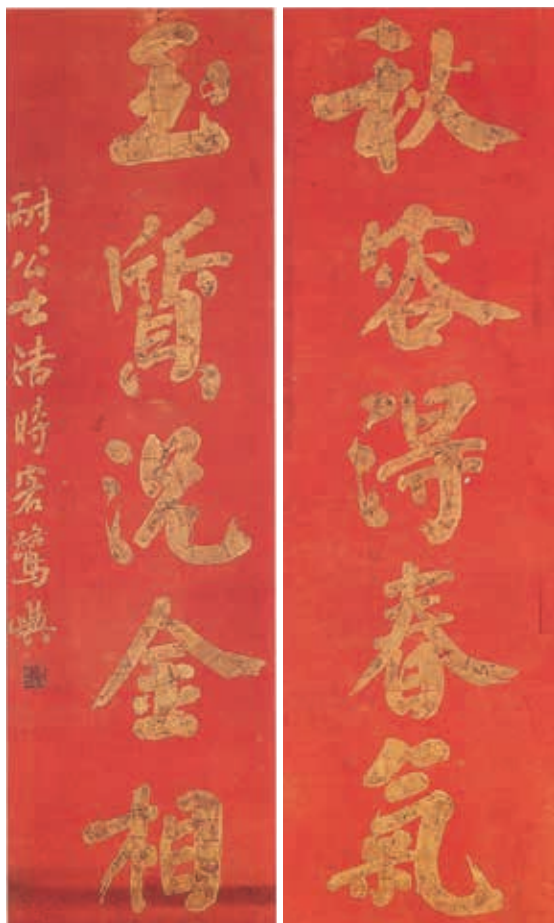 秋容得春氣
玉質況金相
耐公士浩時客鷺嶼